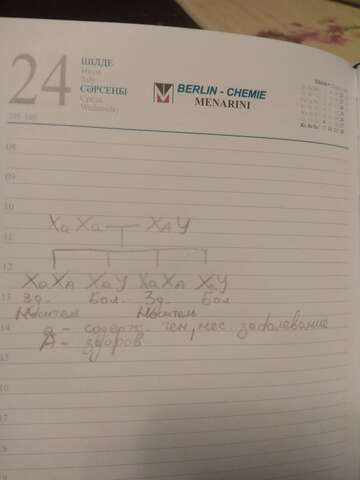 24
ШІЛДЕ
Июль
July
СӘРСЕНБІ
Среда
Wednesday
BERLIN - CHEMIE
MENARINI
08
09
10
Xa Xa — XA Y
11
12
XaXA XaY XaXA XaY
13 Зд. Бол. Зд. Бол
Носитель Носитель
14 а - содерж. ген, нес. заболевание
А - здоров
15
16
17
18